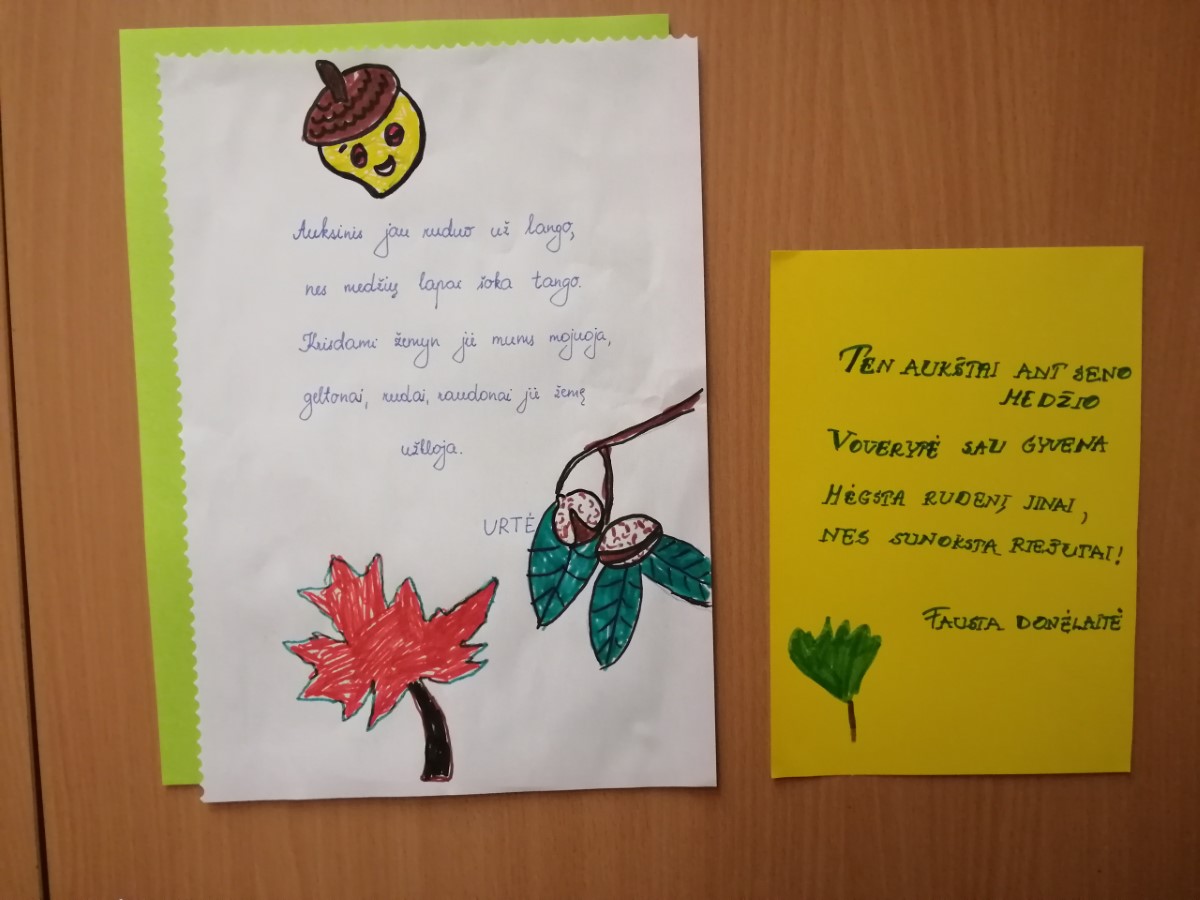 Auksinis jau ruduo už lango,
nes medžių lapai šoka tango.
Krisdami žemyn jie mums mojuoja,
geltonai, rudai, raudonai jie žemę
užkloja.
URTĖ
TEN AUKŠTAI ANT SENO
MEDŽIO
VOVERYTĖ SAU GYVENA
MĖGSTA RUDENĮ JINAI,
NES SUNOKSTA RIEŠUTAI!
FAUSTA DONĖLAITĖ